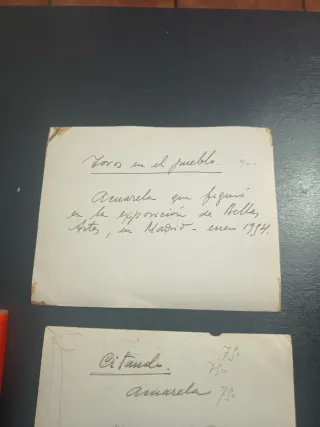 Toros en el pueblo. 900
Acuarela que figuró
en la exposición de Bellas
Artes, en Madrid - enero 1954.
Citando.
750
750
acuarela 750